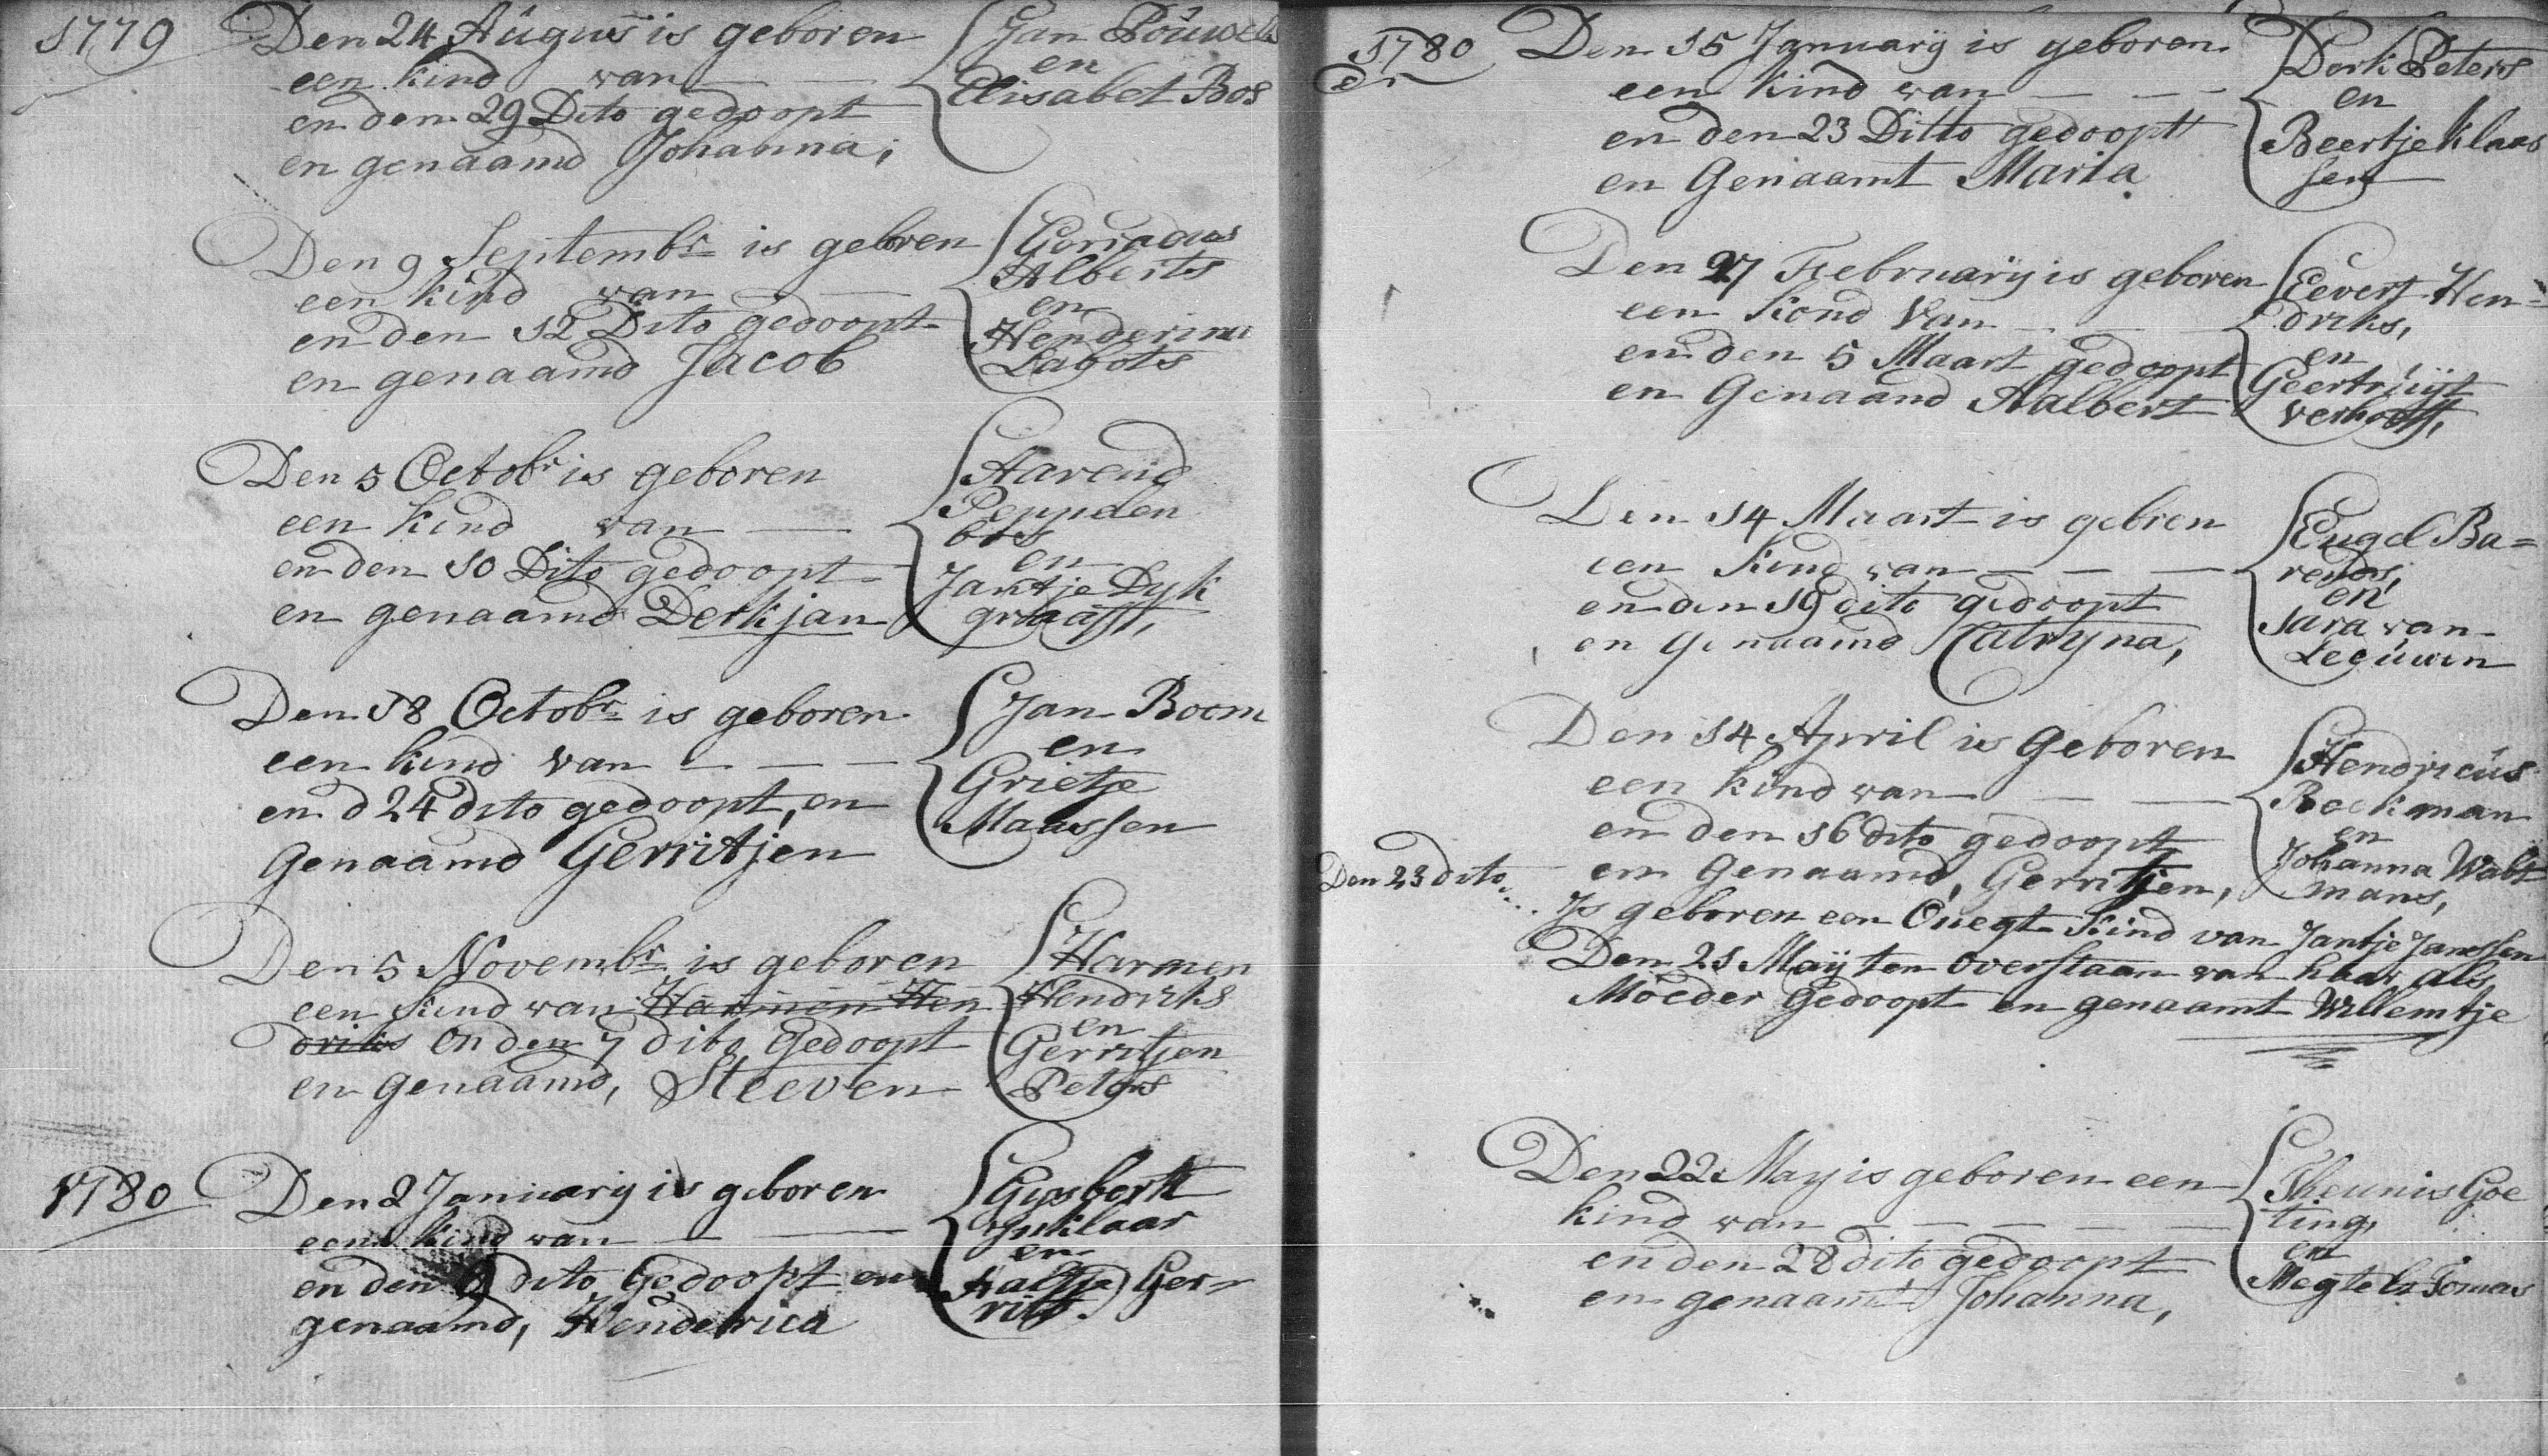 1779
Den 24 Augus is geboren
een kind van
en den 29 Dito gedoopt
en genaamd Johanna;
Jan Pouwels
en
Elisabet Bos
Den 9 Septembr is geboren
een kind van
en den 12 Dito gedoopt
en genaamd Jacob
Alberts
en
Henderina
Labots
Den 5 Octobr is geboren
een kind van
en den 10 Dito gedoopt
en genaamd Derkjan
Aarend
Peppelen
bos
en
Jantje Dyk
graaff,
Den 18 Octobr is geboren
een kind van
en d 24 dito gedoopt, en
Genaamd Gerritjen
Jan Boom
en
Grietje
Maassen
Den 5 Novembr is geboren
een kind van Harmen Hen
driks en den 7 dito Gedoopt
en genaamd, Steeven
Harmen
Hendriks
en
Gerritjen
Peters
1780
Den 2 January is geboren
een kind van
en den 9 dito Gedoopt en
genaamd, Henderica
Gysbert
Ynklaar
en
Aaltje Ger-
rits.
1780
Den 15 January is geboren
een kind van
en den 23 Ditto gedoopt
en Genaamt Maria
Derk Peters
en
Beertje Klaas
sen
Den 27 February is geboren
een kond van
en den 5 Maart gedoopt
en Genaamd Aalbert
Eevert Hen=
driks,
en
Geertruyt
verhoeff,
Den 14 Maart is gebren
een kind van
en den 19 dito gedoopt
en genaamd Catryna,
Engel Ba=
rends,
en
Sara van
Leeuwen
Den 14 April is Geboren
een kind van
en den 16 dito gedoopt
en Genaamd, Gerritjen,
Hendricus
Beekman
en
Johanna Walt
mans,
Den 23 dito
Is geboren een Onegt kind van Jantje Janssen
Den 21 May ten overstaan van haar als
Moeder Gedoopt en genaamt Willemtje
Den 22 May is geboren een
kind van
en den 28 dito gedoopt
en genaamt Johanna,
Theunis Goe
ting,
en
Megtelt Tomas